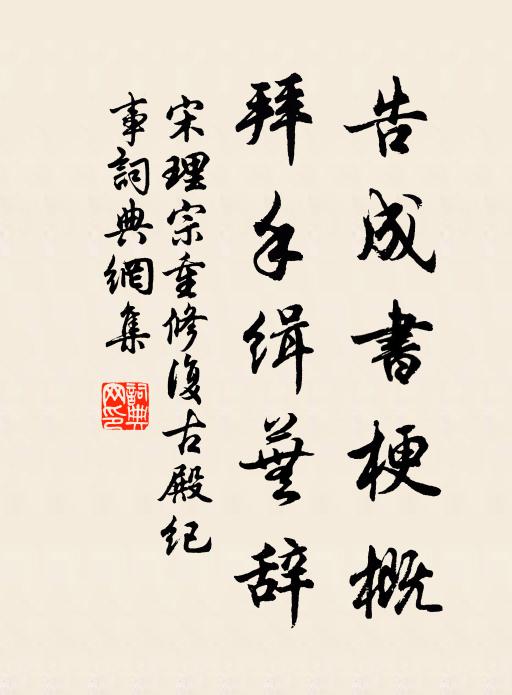 告成書梗概
拜手缉蕪辞
宋理宗重修復古殿纪
事詞典網集
詞典網印